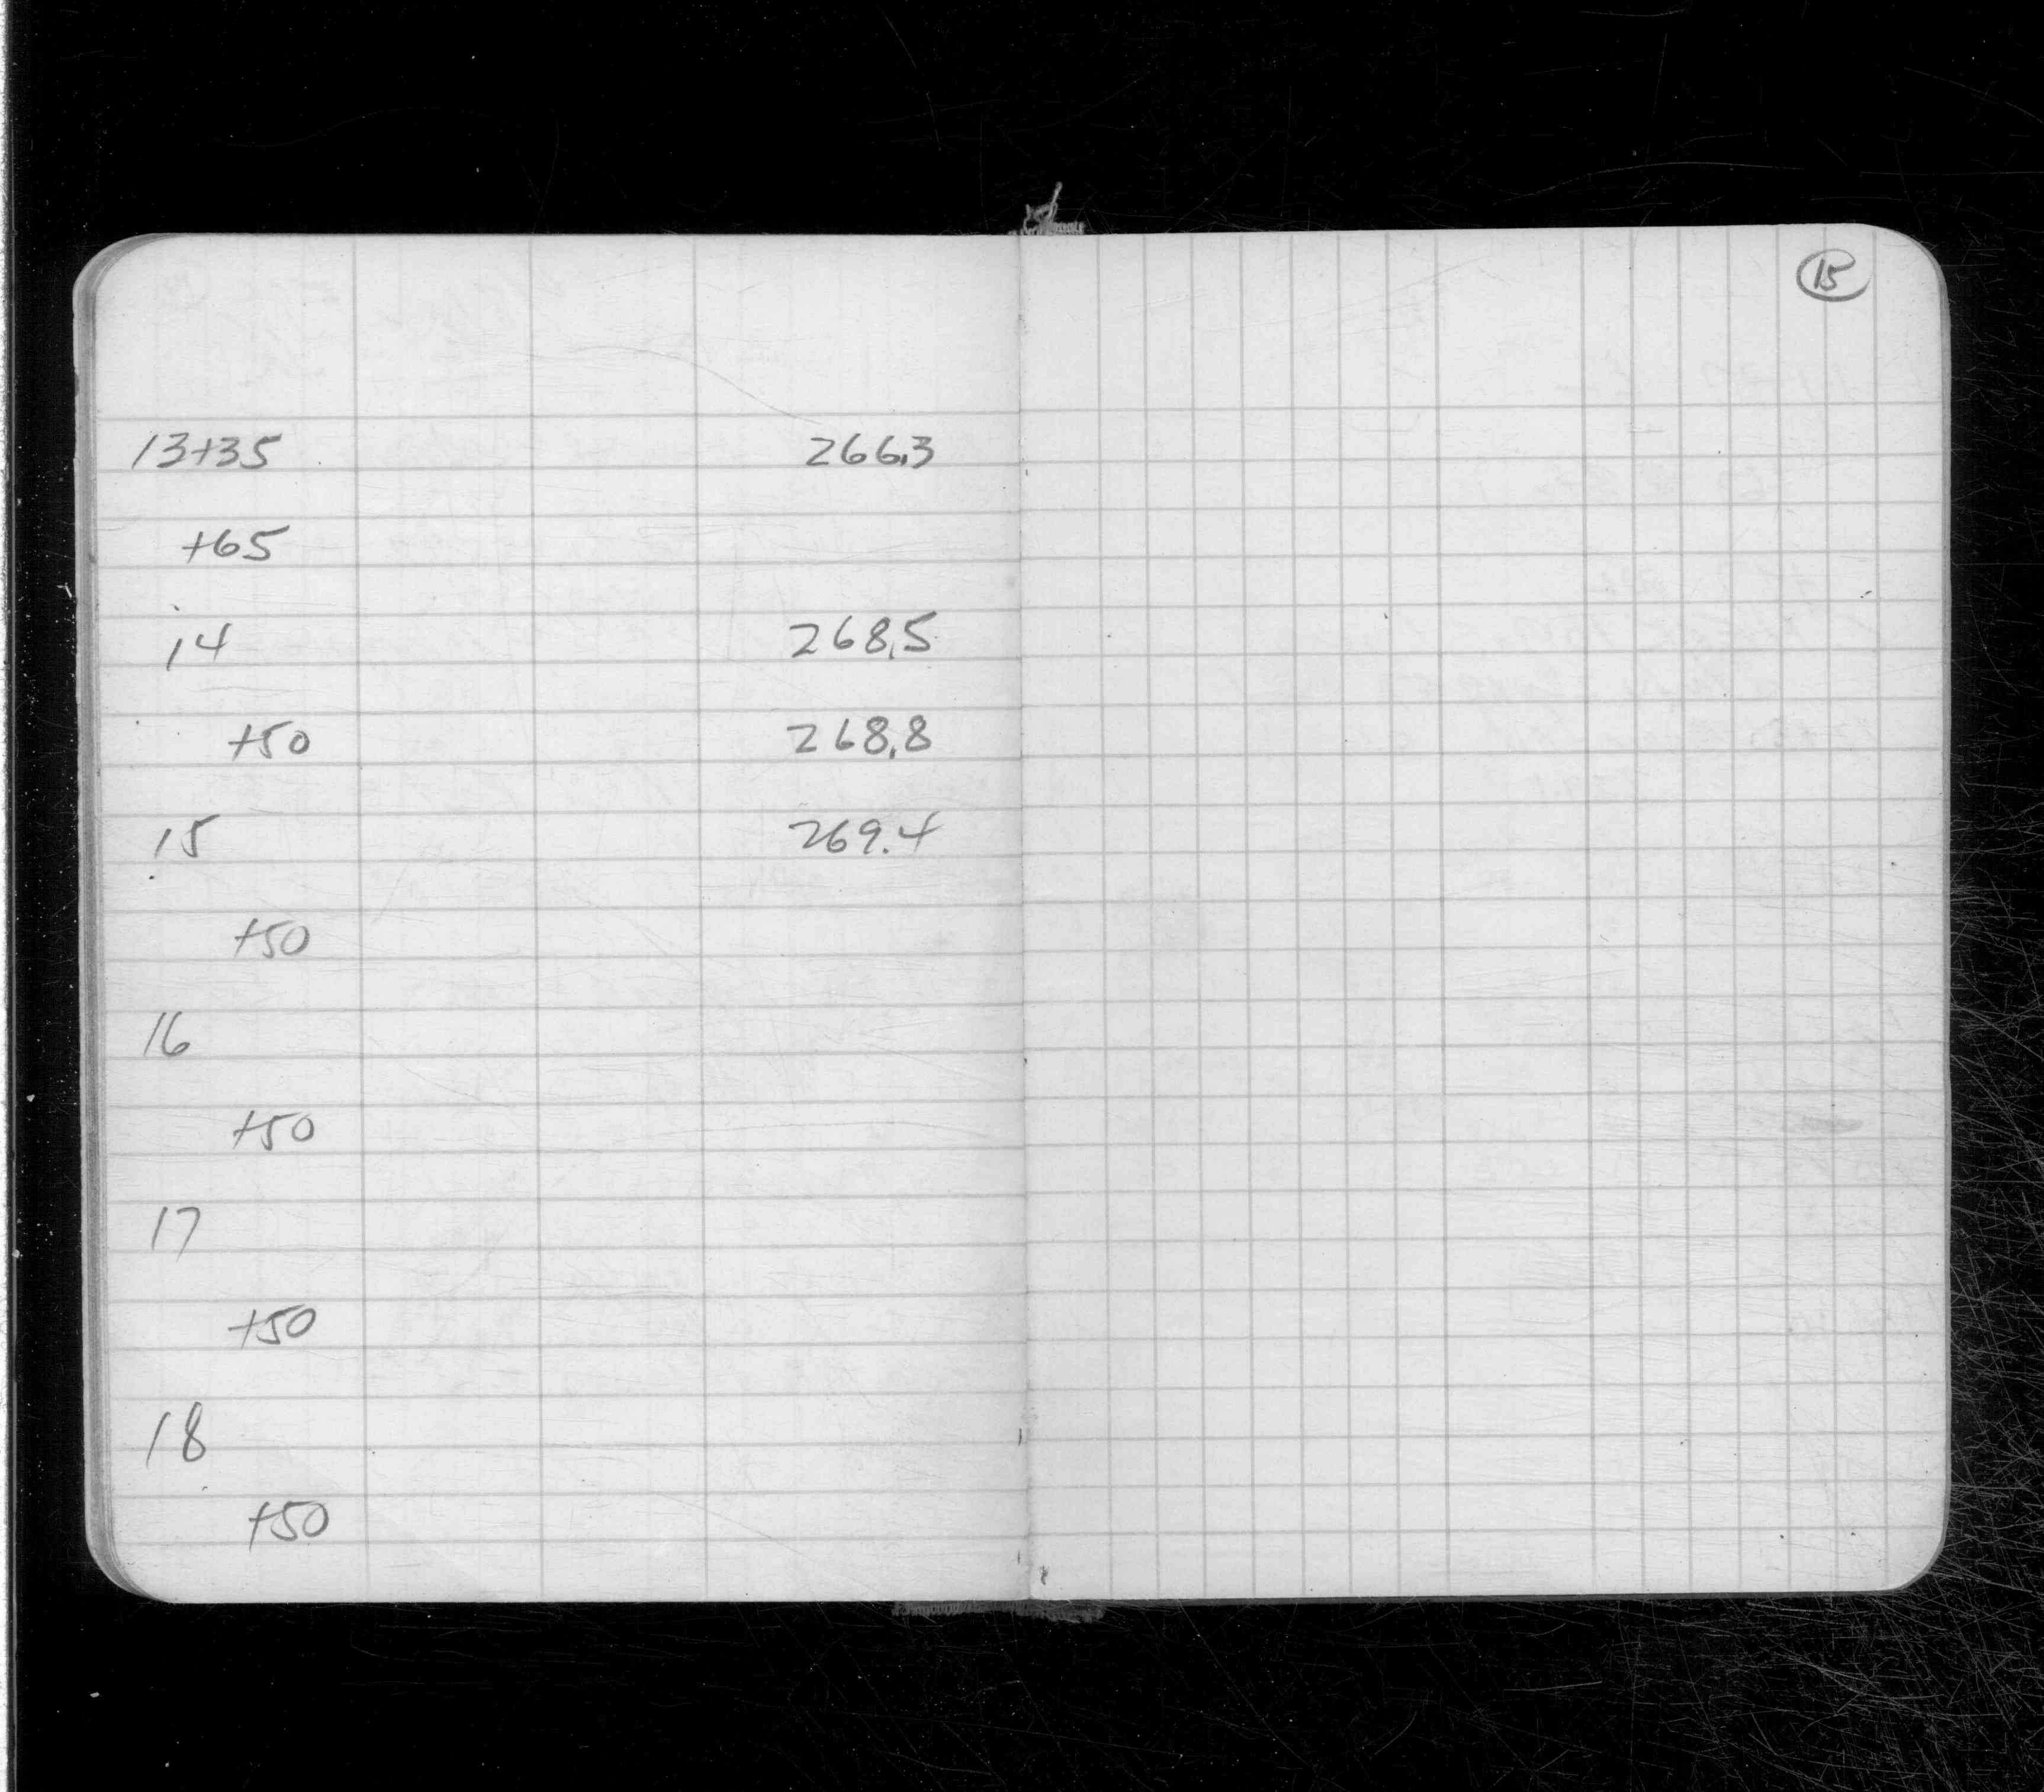 15
13+35 266.3
+65
14 268.5
+50 268.8
15 269.4
+50
16
+50
17
+50
18
+50